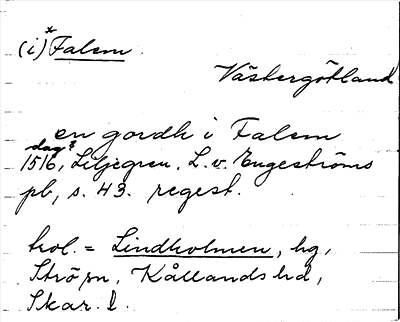 (i)* Falem.
Västergötland
en gordh i Falem
dag?
1516, Liljegren. L. v. Engeströms
pb, s. 43. regest.
hol. = Lindholmen, hg,
Strö sn, Kållands hd,
Skar. l.